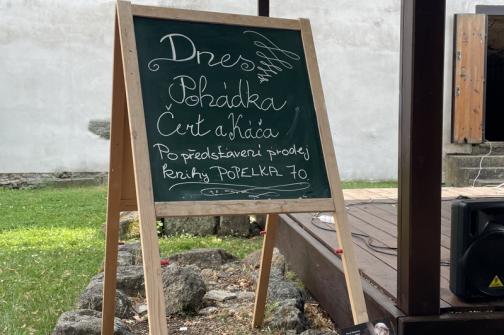 Dnes
Pohádka
Čert a Káča
Po představení prodej
knihy POPELKA 70